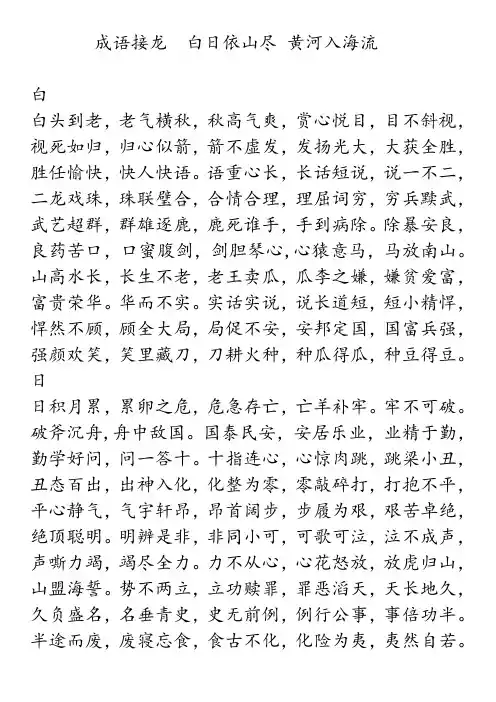 成语接龙 白日依山尽 黄河入海流
白
白头到老，老气横秋，秋高气爽，赏心悦目，目不斜视，
视死如归，归心似箭，箭不虚发，发扬光大，大获全胜，
胜任愉快，快人快语。语重心长，长话短说，说一不二，
二龙戏珠，珠联璧合，合情合理，理屈词穷，穷兵黩武，
武艺超群，群雄逐鹿，鹿死谁手，手到病除。除暴安良，
良药苦口，口蜜腹剑，剑胆琴心，心猿意马，马放南山。
山高水长，长生不老，老王卖瓜，瓜李之嫌，嫌贫爱富，
富贵荣华。华而不实。实话实说，说长道短，短小精悍，
悍然不顾，顾全大局，局促不安，安邦定国，国富兵强，
强颜欢笑，笑里藏刀，刀耕火种，种瓜得瓜，种豆得豆。
日
日积月累，累卵之危，危急存亡，亡羊补牢。牢不可破。
破斧沉舟，舟中敌国。国泰民安，安居乐业，业精于勤，
勤学好问，问一答十。十指连心，心惊肉跳，跳梁小丑，
丑态百出，出神入化，化整为零，零敲碎打，打抱不平，
平心静气，气宇轩昂，昂首阔步，步履为艰，艰苦卓绝，
绝顶聪明。明辨是非，非同小可，可歌可泣，泣不成声，
声嘶力竭，竭尽全力。力不从心，心花怒放，放虎归山，
山盟海誓。势不两立，立功赎罪，罪恶滔天，天长地久，
久负盛名，名垂青史，史无前例，例行公事，事倍功半。
半途而废，废寝忘食，食古不化，化险为夷，夷然自若。